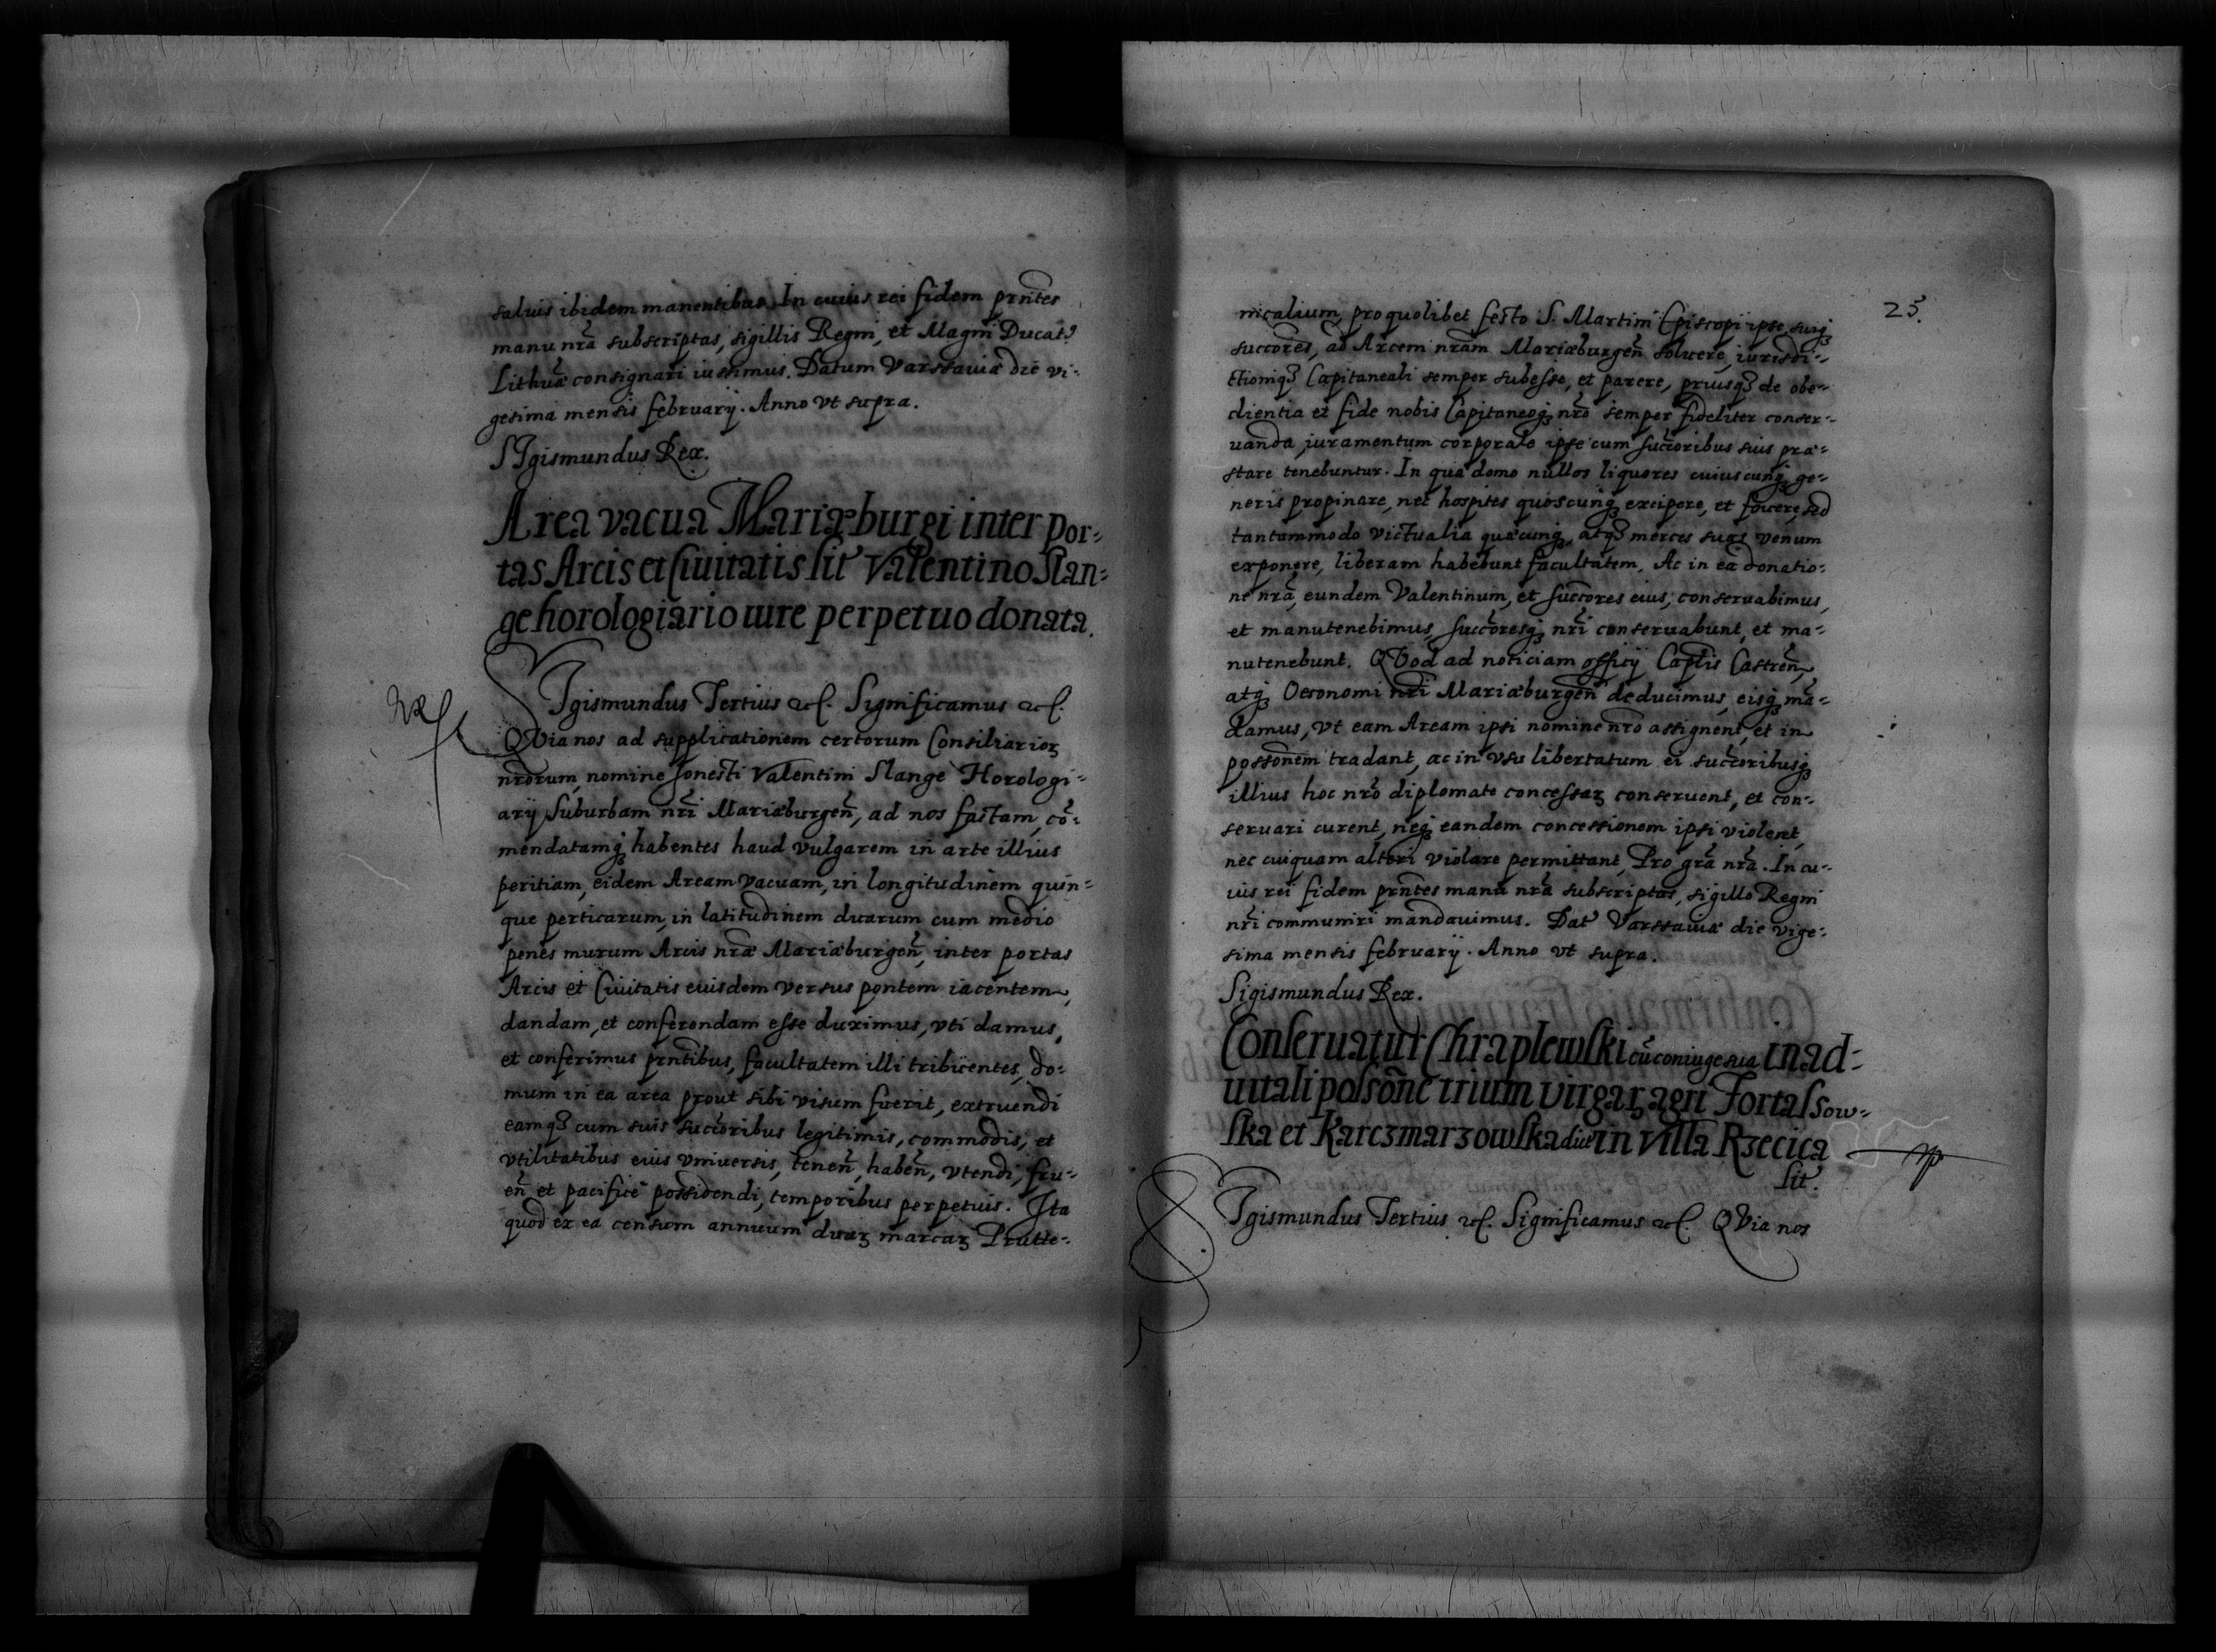 saluis ibidem manentibus. In cuius rei fidem prñtes
manu nrã subscriptas, sigillis Regni, et Magni Ducatꝰ
Lithuæ consignari iussimus. Datum Varssauiæ die vi-
gesima mensis february. Anno vt supra.
SIgismundus Rex.
Area vacua Mariæburgi inter por-
tas Arcis et Ciuitatis sit Valentino Slan-
ge horologiario iure perpetuo donata.
SIgismundus Tertius etc. Significamus etc.
QVia nos ad supplicationem certorum Consiliarioꝝ
nrõrum, nomine honesti Valentini Slange Horologi-
arij Suburbani nrĩ Mariæburgeñ, ad nos factam, cõ-
mendatamqꝫ habentes haud vulgarem in arte illius
peritiam, eidem Aream vacuam, in longitudinem quin-
que perticarum, in latitudinem duarum cum medio
penes murum Arcis nræ Mariæburgeñ, inter portas
Arcis et Ciuitatis eiusdem versus pontem iacentem,
dandam, et conferendam esse duximus, vti damus,
et conferimus prñtibus, facultatem illi tribuentes, do-
mum in ea area prout sibi visum fuerit, extruendi
eamqꝫ cum suis succoribus legitimis, commodis, et
vtilitatibus eius vniuersis, teneñ, habeñ, vtendi, fru-
eñ et pacificè possidendi, temporibus perpetuis. Ita
quod ex ea censum annuum duaꝝ marcaꝝ Prutte-
25.
nicalium, pro quolibet festo S. Martini Episcopi ipse, suiqꝫ
succores, ad Arcem nram Mariæburgeñ soluere, iurisdi-
ctioniqꝫ Capitaneali semper subesse, et parere, priusqꝫ de obe-
dientia et fide nobis Capitaneoqꝫ nrõ semper fideliter conser-
uanda, iuramentum corporale ipse cum succoribus suis præ-
stare tenebuntur. In qua domo nullos liquores cuiuscunqꝫ ge-
neris propinare, nec hospites quoscunqꝫ excipere, et fouere, sed
tantummodo victualia quæcunqꝫ, atqꝫ merces suas venum
exponere, liberam habebunt facultatem. Ac in ea donatio-
ne nrã, eundem Valentinum, et succores eius, conseruabimus,
et manutenebimus, succoresqꝫ nrĩ conseruabunt, et ma-
nutenebunt. QVod ad noticiam officij Captis Castreñ,
atqꝫ Oeconomi nrĩ Mariæburgeñ deducimus, eisqꝫ mã-
damus, vt eam Aream ipsi nomine nrõ assignent, et in
possonem tradant, ac in vsu libertatum ei succoribusqꝫ
illius hoc nrõ diplomate concessaꝝ conseruent, et con-
seruari curent, neqꝫ eandem concessionem ipsi violent,
nec cuiquam alteri violare permittant, Pro grã nrã. In cu-
ius rei fidem prñtes manu nrã subscriptas, sigillo Regni
nrĩ communiri mandauimus. Dat Varssauiæ die vige-
sima mensis february. Anno vt supra.
Sigismundus Rex.
Conseruatur Chraplewski cũ coniuge sua in ad-
uitali possoñe trium virgaꝝ agri Fortalsow-
ska et Karczmarzowska dict in villa Rzecica
sit.
SIgismundus Tertius etc. Significamus etc. QVia nos